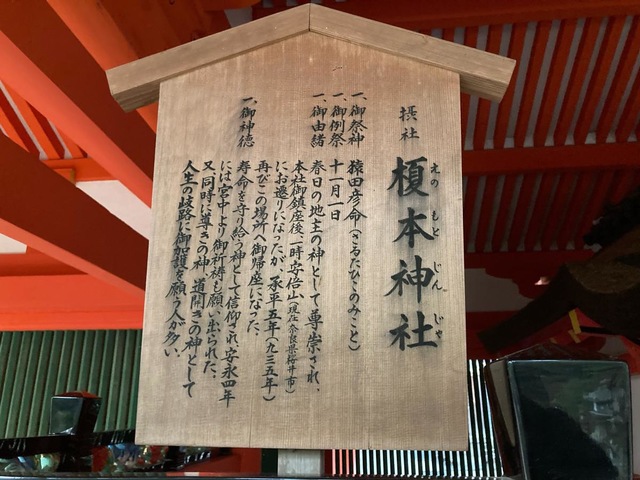 摂社
榎本神社
えの もと じん じゃ
一、御祭神 猿田彦命(さるたひこのみこと)
一、御例祭 十一月一日
一、御由緒 春日の地主の神として尊崇され、
本社御鎮座後一時安倍山(現在奈良県桜井市)
にお遷りになったが、承平五年(九三五年)
再びこの場所へ御帰座になった。
一、御神徳 寿命を守り給う神として信仰され安永四年
には宮中より御祈祷も願い出られた。
又同時に導きの神、道開きの神として
人生の岐路に御守護を願う人が多い。